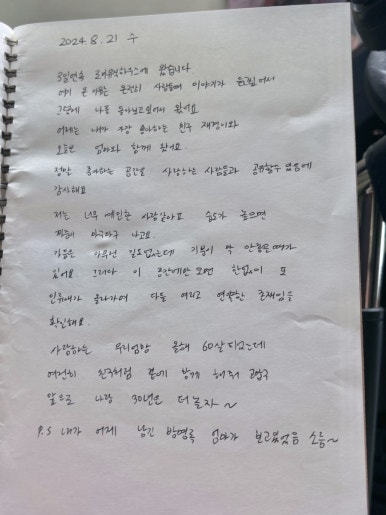 2024. 8. 21 수
3일연속 로파뮤직하우스에 왔습니다
여기 온 이유는 온전히 사람들의 이야기가 듣고싶어서
그안에 나를 돌아보고싶어서 왔어요
어제는 내가 가장 좋아하는 친구 재경이와
오늘은 엄마와 함께 왔어요.
정말 좋아하는 공간을 사랑하는 사람들과 공유할수 있음에
감사해요
저는 너무 예민한 사람같아요 습도가 높으면
짜증이 마구마구 나고요
가끔은 아무런 일도없는데 기분이 막 안좋은때가
있어요 그러다 이 공간에만 오면 한없이 또
인류애가 올라가며 다들 여리고 연약한 존재임을
확인해요.
사랑하는 우리엄마 올해 60살 되었는데
여전히 친구처럼 곁에 함께 해줘 고맙구
앞으로 나랑 30년만 더 놀자~
P.S 내가 어제 남긴 방명록 엄마가 보고있었음 소름~